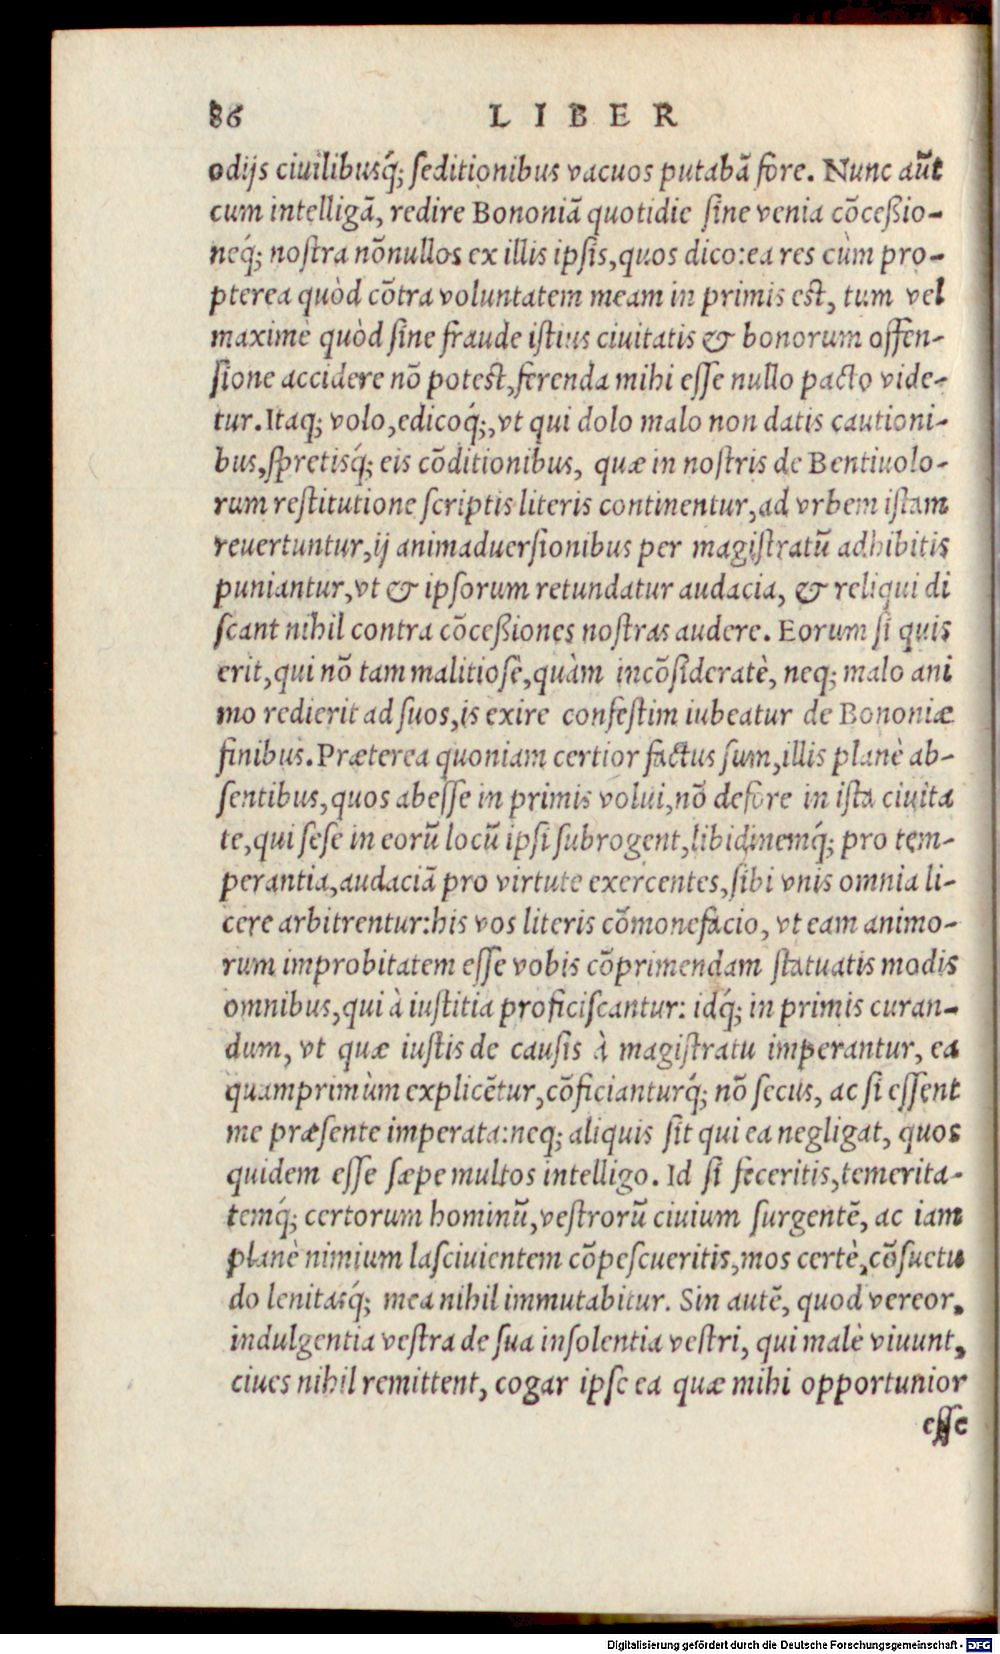 86 LIBER
odijs ciuilibusq́; ſeditionibus vacuos putabā fore. Nunc aūt
cum intelligā, redire Bononiā quotidie ſine venia cōceßio-
neq́; noſtra nōnullos ex illis ipſis, quos dico: ea res cùm pro-
pterea quòd cōtra voluntatem meam in primis est, tum vel
maximè quòd ſine fraude iſtius ciuitatis & bonorum offen-
ſione accidere nō potest, ferenda mihi eſſe nullo pacto vide-
tur. Itaq; volo, edicoq́;, vt qui dolo malo non datis cautioni-
bus, ſpretisq́; eis cōditionibus, quæ in noſtris de Bentiuolo-
rum reſtitutione ſcriptis literis continentur, ad vrbem iſtam
reuertuntur, ij animaduerſionibus per magiſtratū adhibitis
puniantur, vt & ipſorum retundatur audacia, & reliqui di
ſcant nihil contra cōceßiones noſtras audere. Eorum ſi quis
erit, qui nō tam malitioſè, quàm incōſideratè, neq; malo ani
mo redierit ad ſuos, is exire confeſtim iubeatur de Bononiæ
finibus. Præterea quoniam certior factus ſum, illis planè ab-
ſentibus, quos abeſſe in primis volui, nō defore in iſta ciuita
te, qui ſeſe in eorū locū ipſi ſubrogent, libidinemq́; pro tem-
perantia, audaciā pro virtute exercentes, ſibi vnis omnia li-
cere arbitrentur: his vos literis cōmonefacio, vt eam animo-
rum improbitatem eſſe vobis cōprimendam ſtatuatis modis
omnibus, qui à iuſtitia proficiſcantur: idq́; in primis curan-
dum, vt quæ iuſtis de cauſis à magiſtratu imperantur, ea
quamprimùm explicētur, cōficianturq́; nō ſecus, ac ſi eſſent
me præſente imperata: neq; aliquis ſit qui ea negligat, quos
quidem eſſe ſæpe multos intelligo. Id ſi feceritis, temerita-
temq́; certorum hominū, veſtrorū ciuium ſurgentē, ac iam
planè nimium laſciuientem cōpeſcueritis, mos certè, cōſuetu
do lenitasq́; mea nihil immutabitur. Sin autē, quod vereor,
indulgentia veſtra de ſua inſolentia veſtri, qui malè viuunt,
ciues nihil remittent, cogar ipſe ea quæ mihi opportunior
eſſe
Digitalisierung gefördert durch die Deutsche Forschungsgemeinschaft - DFG